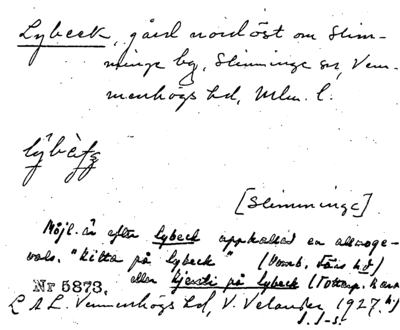 Lybeck, gård nordöst om Slim-
minge by, Slimminge sn, Vem-
menhögs hd, Mlm. l.
[Slimminge]
Möjl. är efter lybeck uppkallad en allmoge-
vals. "Kitta på lybeck" (Vomb, Färs hd)
eller kjersti på lybeck (Tottarp, Bara
Nr 5873. hd)
L.A.L. Vemmenhögs hd, V. Velander 1927.